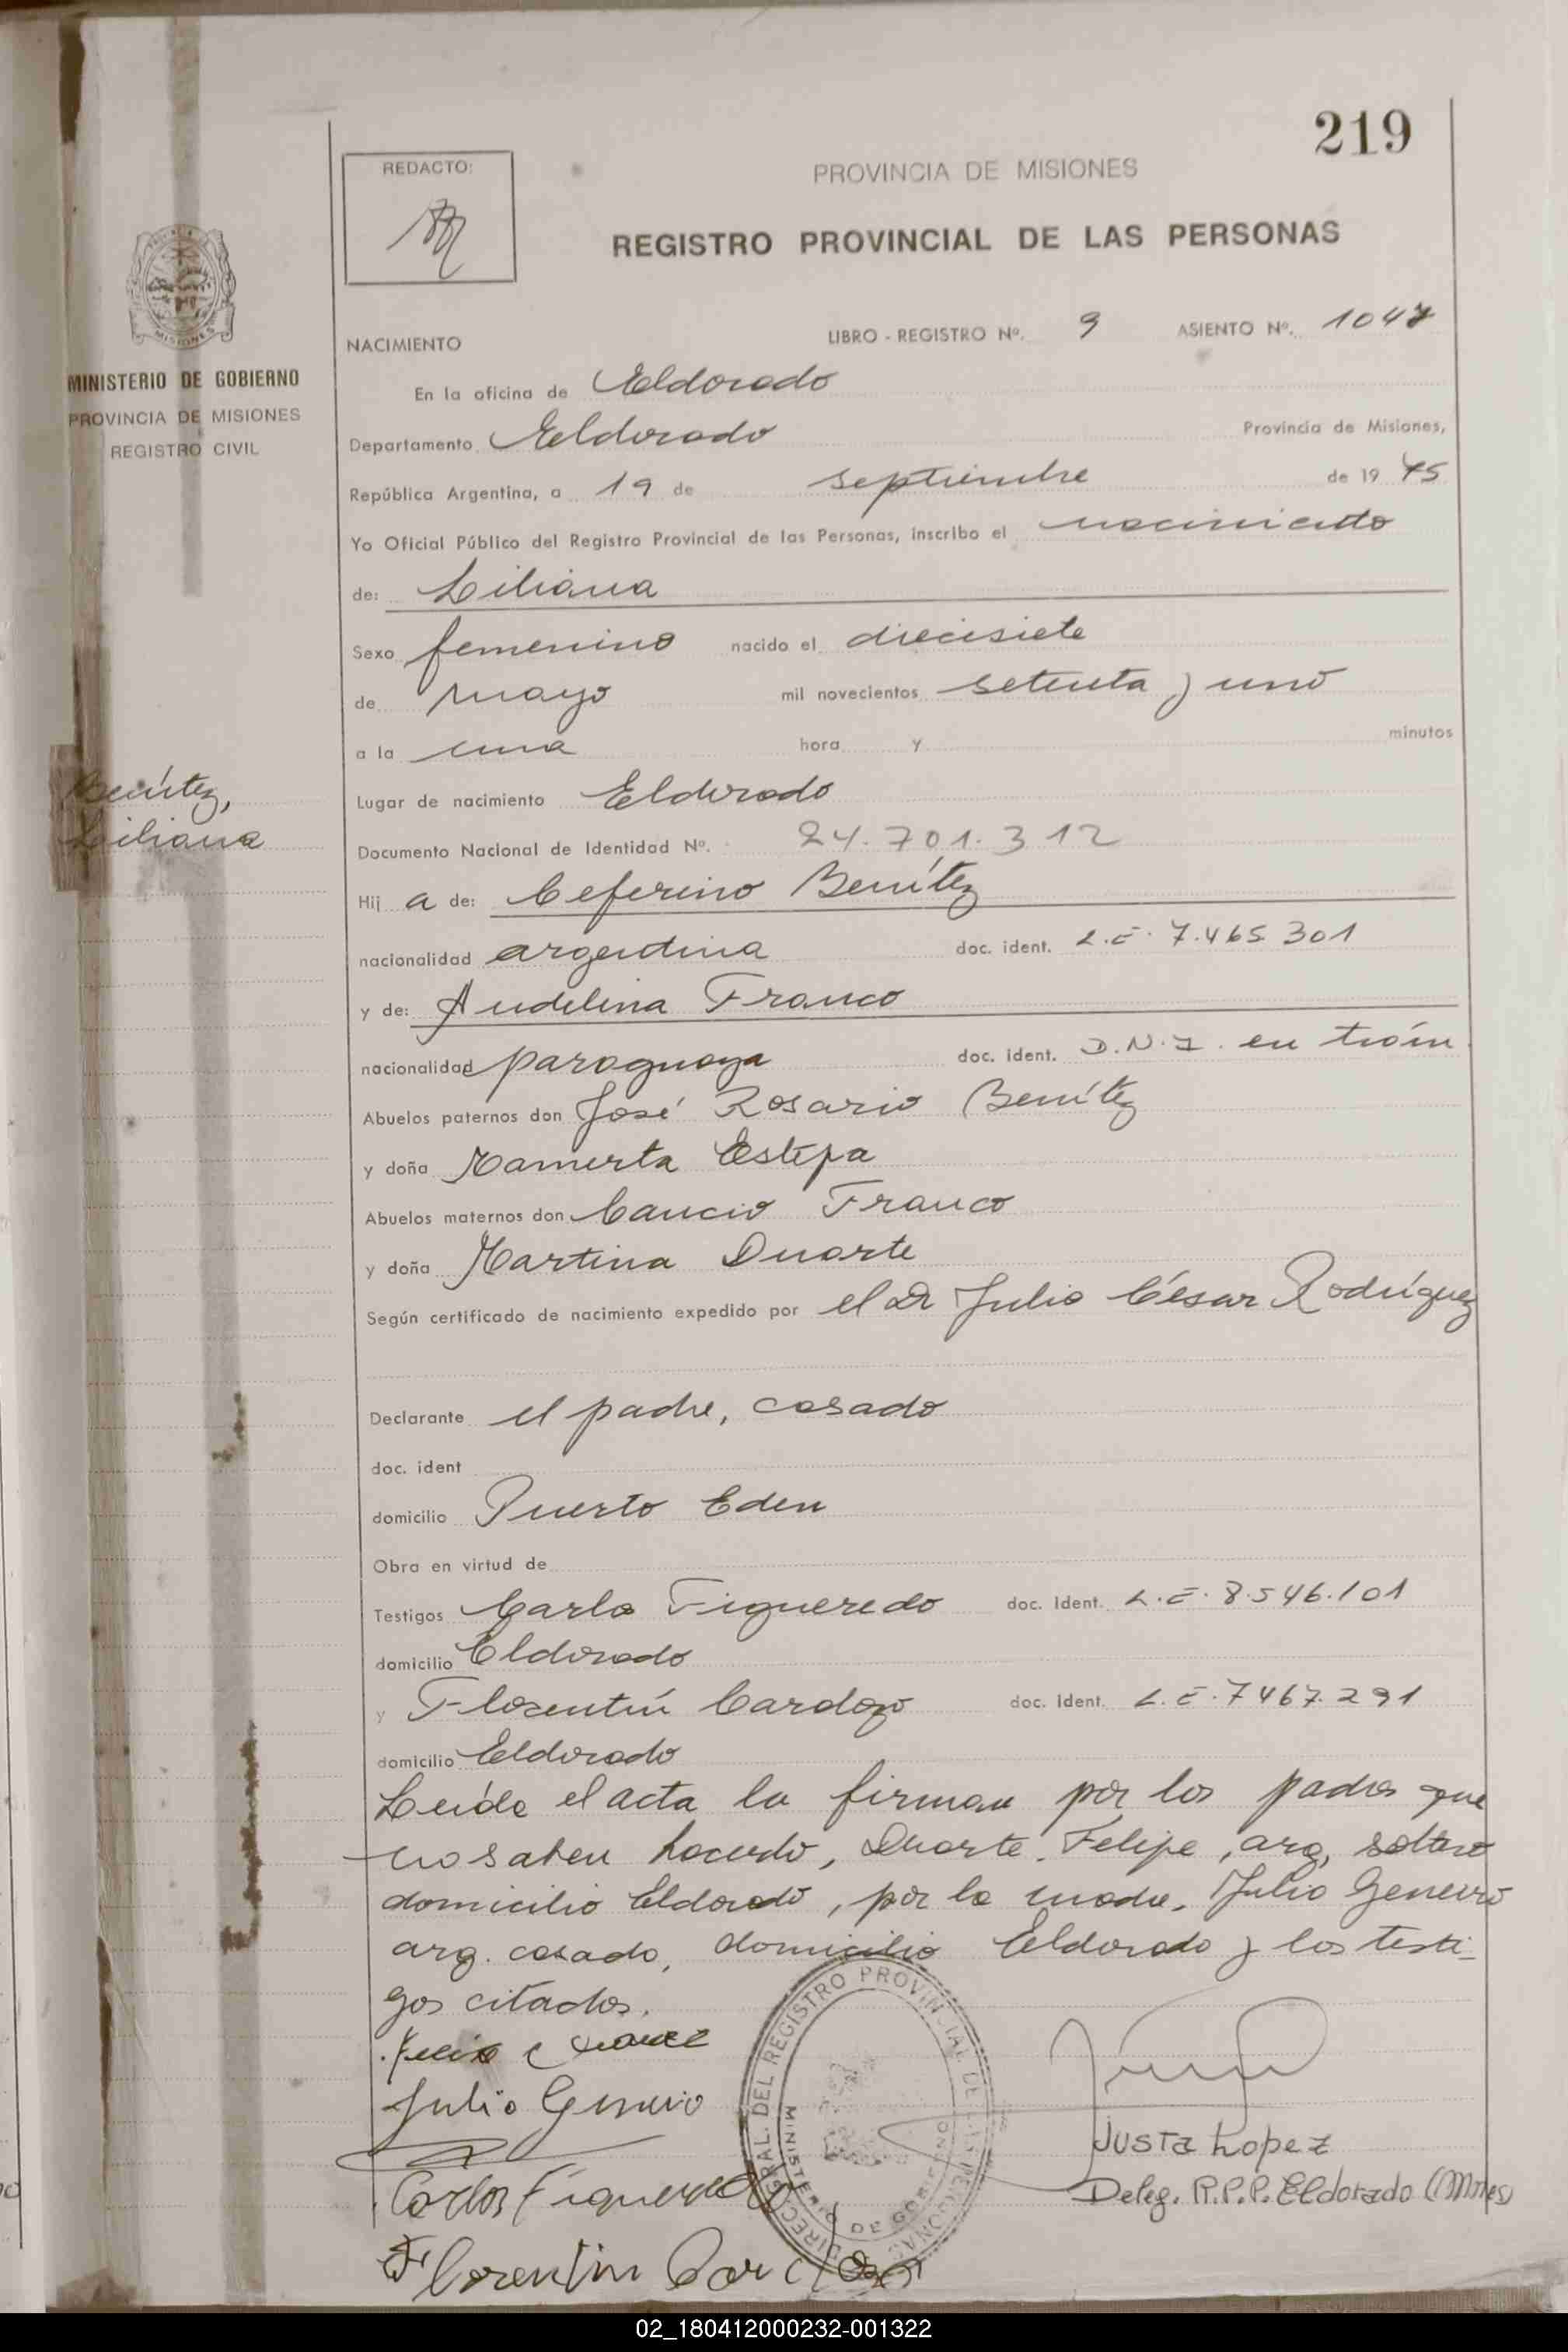 219
REDACTO:
PROVINCIA DE MISIONES
REGISTRO PROVINCIAL DE LAS PERSONAS
MINISTERIO DE GOBIERNO
PROVINCIA DE MISIONES
REGISTRO CIVIL
NACIMIENTO LIBRO - REGISTRO Nº. 9 ASIENTO Nº. 1047
En la oficina de Eldorado
Departamento Eldorado Provincia de Misiones,
República Argentina, a 19 de septiembre de 19 75
Yo Oficial Público del Registro Provincial de las Personas, inscribo el nacimiento
de: Liliana
Sexo femenino nacido el diecisiete
de mayo mil novecientos setenta y uno
a la una hora y minutos
Benítez,
Liliana
Lugar de nacimiento Eldorado
Documento Nacional de Identidad Nº. 24.701.312
Hij a de: Ceferino Benítez
nacionalidad argentina doc. ident. L.E. 7.465.301
y de: Andelina Franco
nacionalidad paraguaya doc. ident. D.N.I. en trám
Abuelos paternos don José Rosario Benítez
y doña Mamerta Estepa
Abuelos maternos don Cancio Franco
y doña Martina Duarte
Según certificado de nacimiento expedido por el Dr Julio César Rodríguez
Declarante el padre, casado
doc. ident
domicilio Puerto Eden
Obra en virtud de
Testigos Carlos Figueredo doc. Ident. L.E. 8.546.101
domicilio Eldorado
y Florentín Cardozo doc. Ident. L.E. 7467.291
domicilio Eldorado
Leída el acta la firman por los padres que
no saben hacerlo, Duarte, Felipe, arg, soltero
domicilio Eldorado, por la madre, Julio Geneiro
arg. casado, domicilio Eldorado y los testi-
gos citados.
Julio Geneiro
Carlos Figueredo
Florentin Cardozo
DIRECC. GRAL. DEL REGISTRO PROVINCIAL DE LAS PERSONAS
MINISTERIO DE GOBIERNO
Justa Lopez
Deleg. R.P.P. Eldorado (Mnes)
02_180412000232-001322